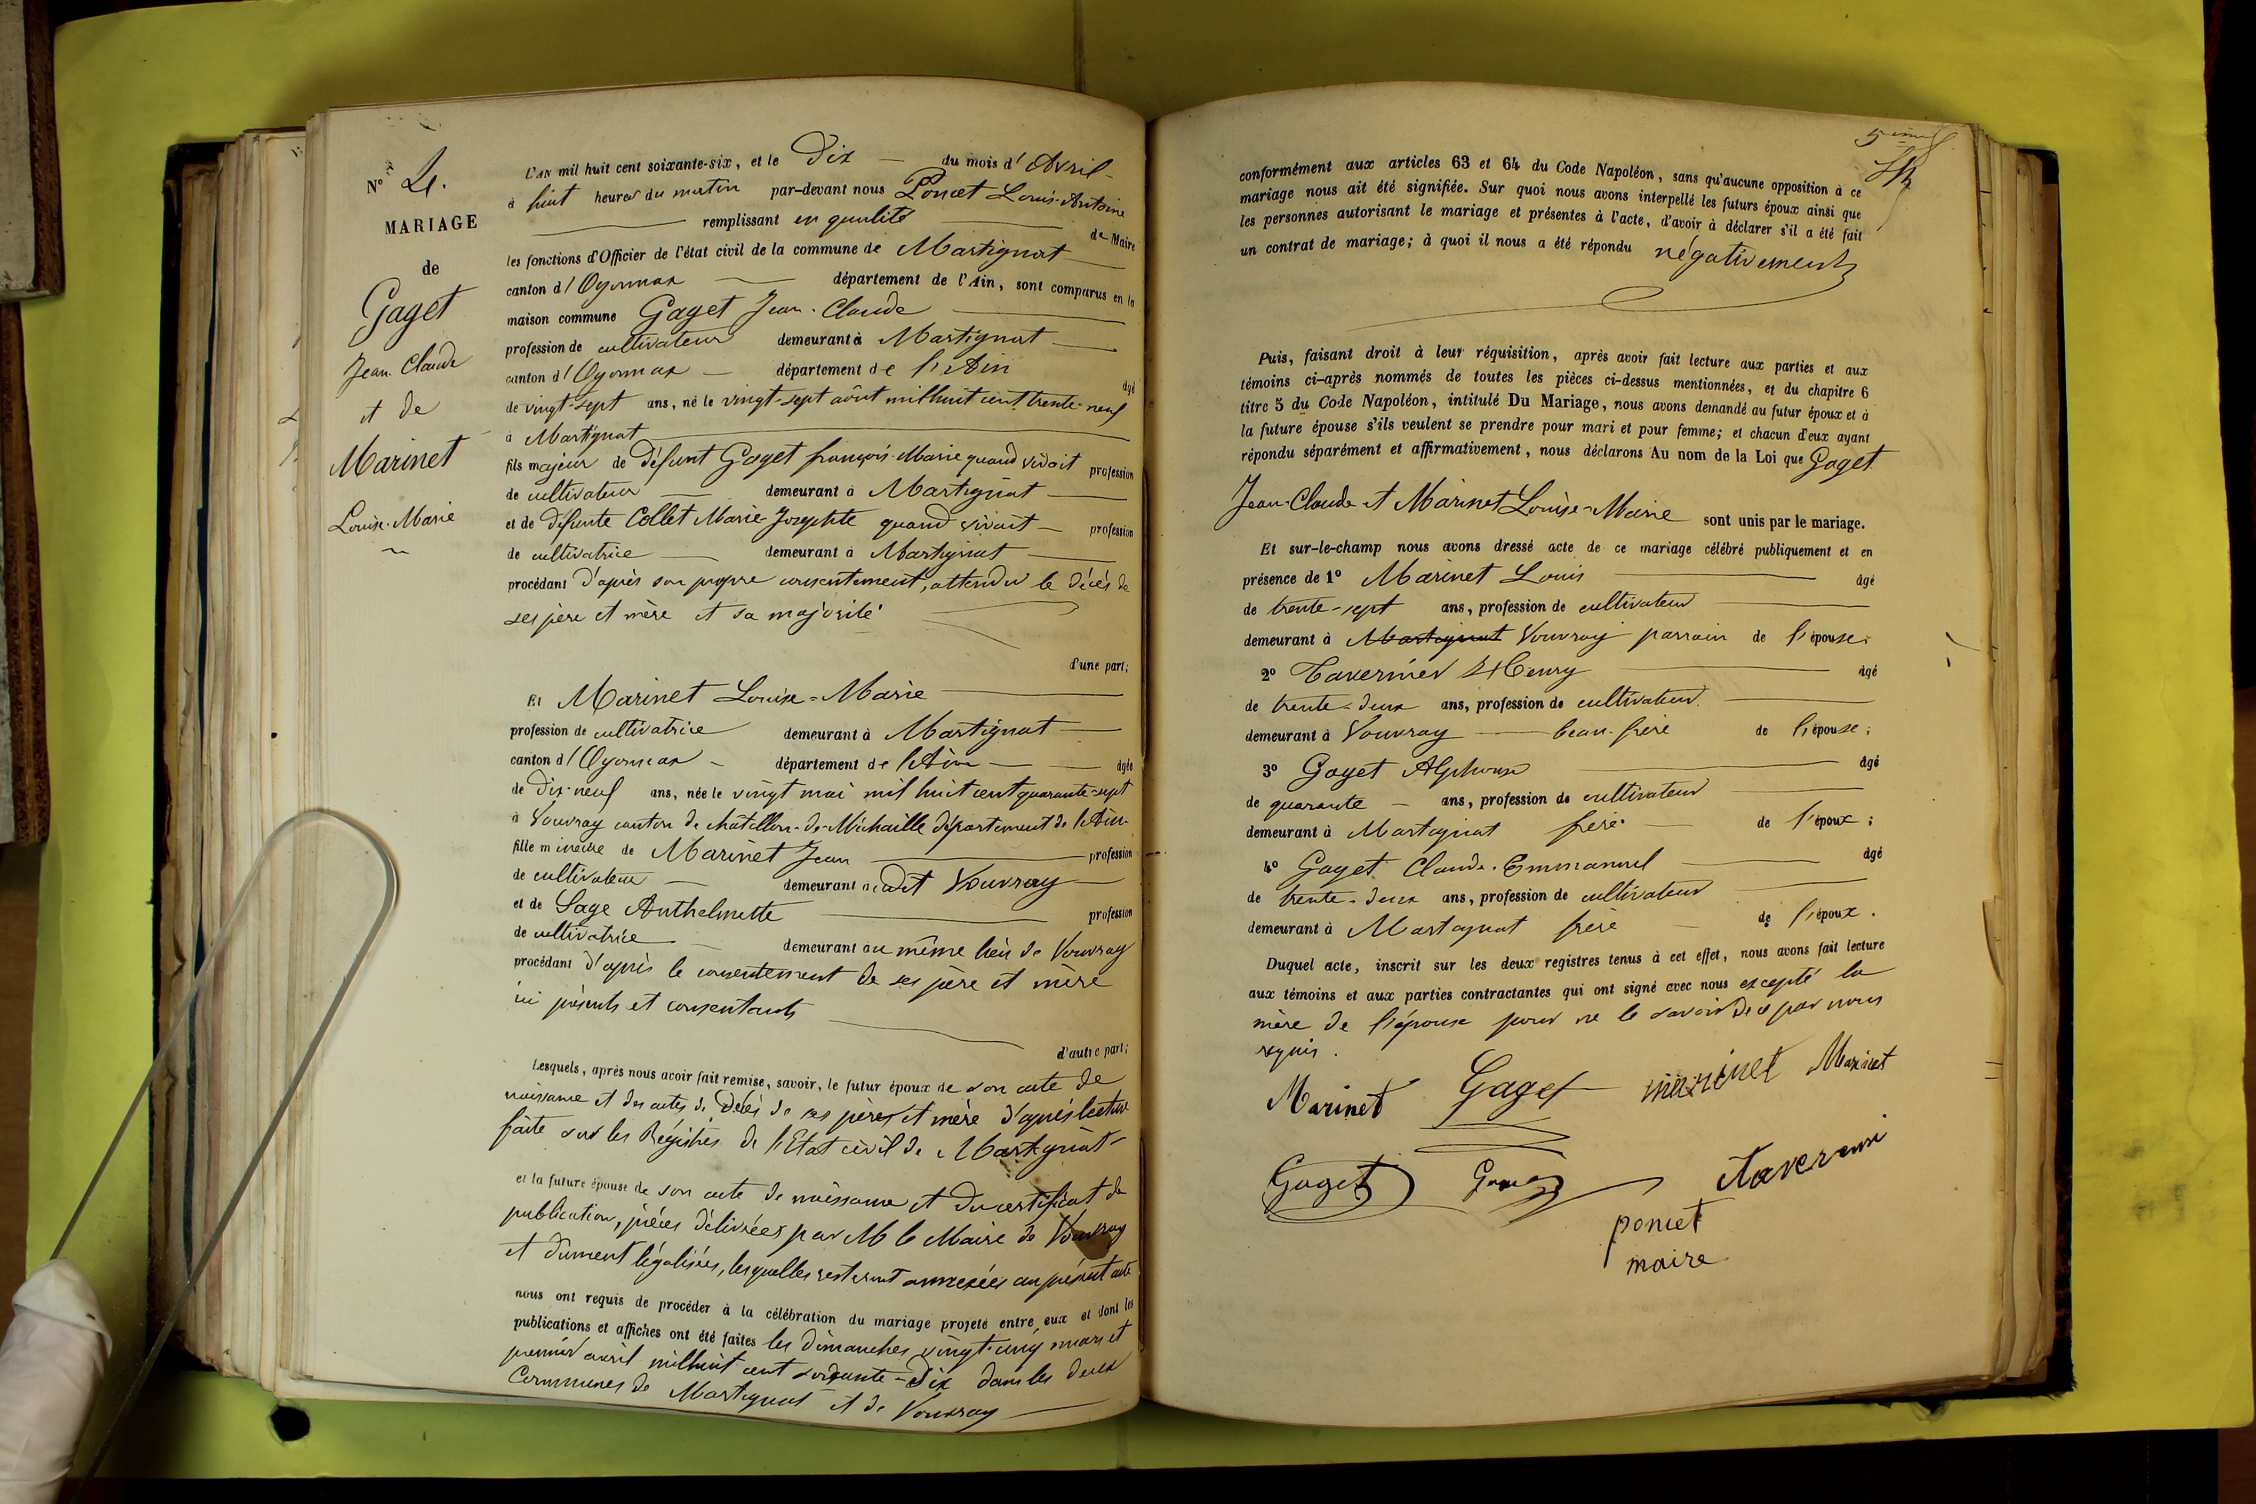 N° 4.
MARIAGE
de
Gaget
Jean Claude
et de
Marinet
Louise-Marie
L'AN mil huit cent soixante-six, et le Dix du mois d'Avril
à huit heures du matin par-devant nous Poncet Louis-Antoine
remplissant en qualité de Maire
les fonctions d'Officier de l'état civil de la commune de Martignat
canton d'Oyonnax département de l'Ain, sont comparus en la
maison commune Gaget Jean-Claude
profession de cultivateur demeurant à Martignat
canton d'Oyonnax département de l'Ain âgé
de vingt-sept ans, né le vingt-sept août mil huit cent trente-neuf
à Martignat
fils majeur de défunt Gaget françois-Marie quand vivait profession
de cultivateur demeurant à Martignat
et de défunte Collet Marie-Josephte quand vivait profession
de cultivatrice demeurant à Martignat
procédant d'après son propre consentement, attendu le décès de
ses père et mère et sa majorité
d'une part;
Et Marinet Louise-Marie
profession de cultivatrice demeurant à Martignat
canton d'Oyonnax département de l'Ain âgée
de Dix-neuf ans, née le vingt mai mil huit cent quarante-sept
à Vouvray canton de châtillon-de-Michaille département de l'Ain
fille mineure de Marinet Jean profession
de cultivateur demeurant audit Vouvray
et de Sage Anthelmette profession
de cultivatrice demeurant au même lieu de Vouvray
procédant d'après le consentement de ses père et mère
ici présents et consentants
d'autre part;
Lesquels, après nous avoir fait remise, savoir, le futur époux de son acte de
naissance et des actes de décès de ses père et mère d'après lecture
faite sur les Régistres de l'Etat civil de Martignat
et la future épouse de son acte de naissance et du certificat de
publication, pièces délivrées par M le Maire de Vouvray
et dûment légalisées, lesquelles resteront annexées au présent acte
nous ont requis de procéder à la célébration du mariage projeté entre eux et dont les
publications et affiches ont été faites les dimanches vingt-cinq mars et
premier avril mil huit cent soixante-Dix dans les deux
Communes de Martignat et de Vouvray
5ème
conformément aux articles 63 et 64 du Code Napoléon, sans qu'aucune opposition à ce
mariage nous ait été signifiée. Sur quoi nous avons interpellé les futurs époux ainsi que
les personnes autorisant le mariage et présentes à l'acte, d'avoir à déclarer s'il a été fait
un contrat de mariage; à quoi il nous a été répondu négativement
Puis, faisant droit à leur réquisition, après avoir fait lecture aux parties et aux
témoins ci-après nommés de toutes les pièces ci-dessus mentionnées, et du chapitre 6
titre 5 du Code Napoléon, intitulé Du Mariage, nous avons demandé au futur époux et à
la future épouse s'ils veulent se prendre pour mari et pour femme; et chacun d'eux ayant
répondu séparément et affirmativement, nous déclarons Au nom de la Loi que Gaget
Jean-Claude et Marinet Louise-Marie sont unis par le mariage.
Et sur-le-champ nous avons dressé acte de ce mariage célébré publiquement et en
présence de 1° Marinet Louis âgé
de trente-sept ans, profession de cultivateur
demeurant à Martignat Vouvray parrain de l'épouse;
2° Tavernier Henry âgé
de trente-deux ans, profession de cultivateur
demeurant à Vouvray beau-frère de l'épouse;
3° Gaget Alphonse âgé
de quarante ans, profession de cultivateur
demeurant à Martignat frère de l'époux;
4° Gaget Claude-Emmanuel âgé
de trente-deux ans, profession de cultivateur
demeurant à Martignat frère de l'époux.
Duquel acte, inscrit sur les deux registres tenus à cet effet, nous avons fait lecture
aux témoins et aux parties contractantes qui ont signé avec nous excepté la
mère de l'épouse pour ne le savoir de ce par nous
requis.
Marinet Gaget marinet Marinet
Gaget Tavernier
poncet
maire